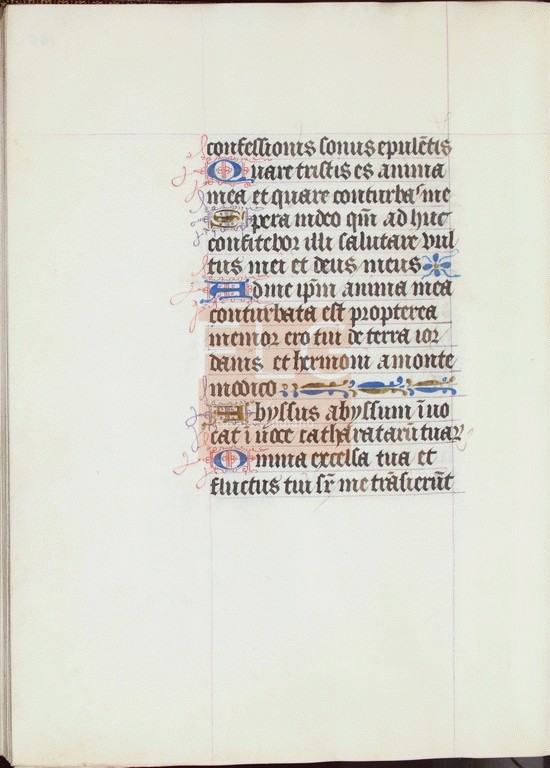 confessionis sonus epulẽtis
Quare tristis es anima
mea et quare conturbas me
Spera in deo qm̃ ad huc
confitebor illi salutare vul
tus mei et deus meus
Ad me ip̃m anima mea
conturbata est propterea
memor ero tui de terra ior
danis et hermonii a monte
modico
Abyssus abyssum ĩuo
cat ĩ uoce catharatarũ tuaꝝ
Omnia excelsa tua et
fluctus tui sr̃ me trãsierũt